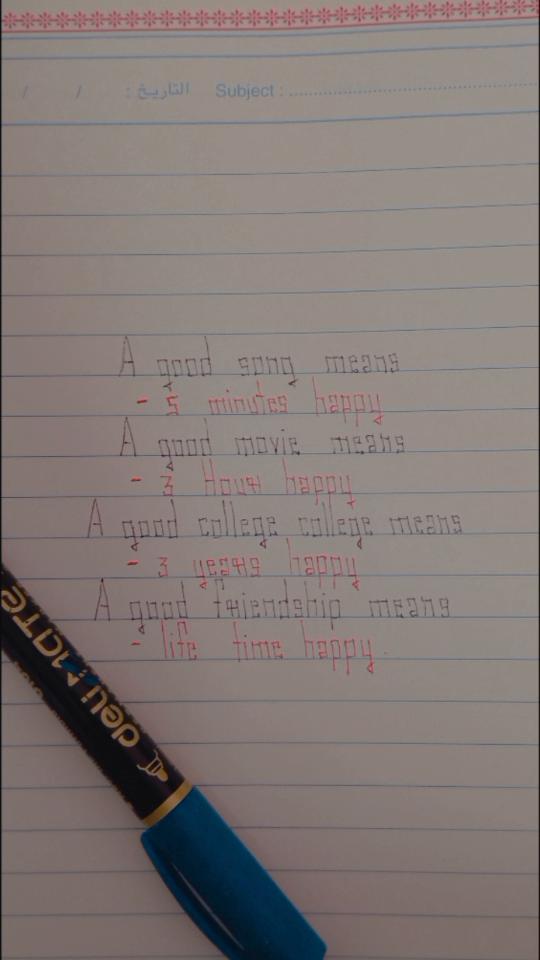 / / التاريخ : Subject : ........................................
A good song means
- 5 minutes happy
A good movie means
- 3 Hour happy
A good college college means
- 3 years happy
A good friendship means
- life time happy.
deli MATE